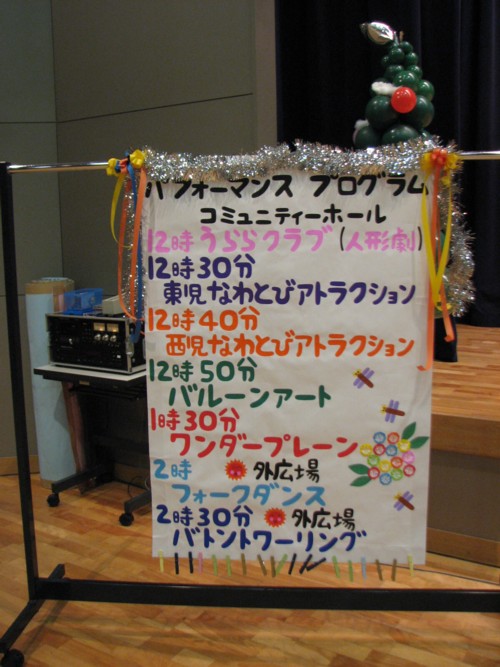 パフォーマンス プログラム
コミュニティーホール
12時 うららクラブ (人形劇)
12時30分
東児なわとびアトラクション
12時40分
西児なわとびアトラクション
12時50分
バルーンアート
1時30分
ワンダープレーン
2時 外広場
フォークダンス
2時30分 外広場
バトントワーリング